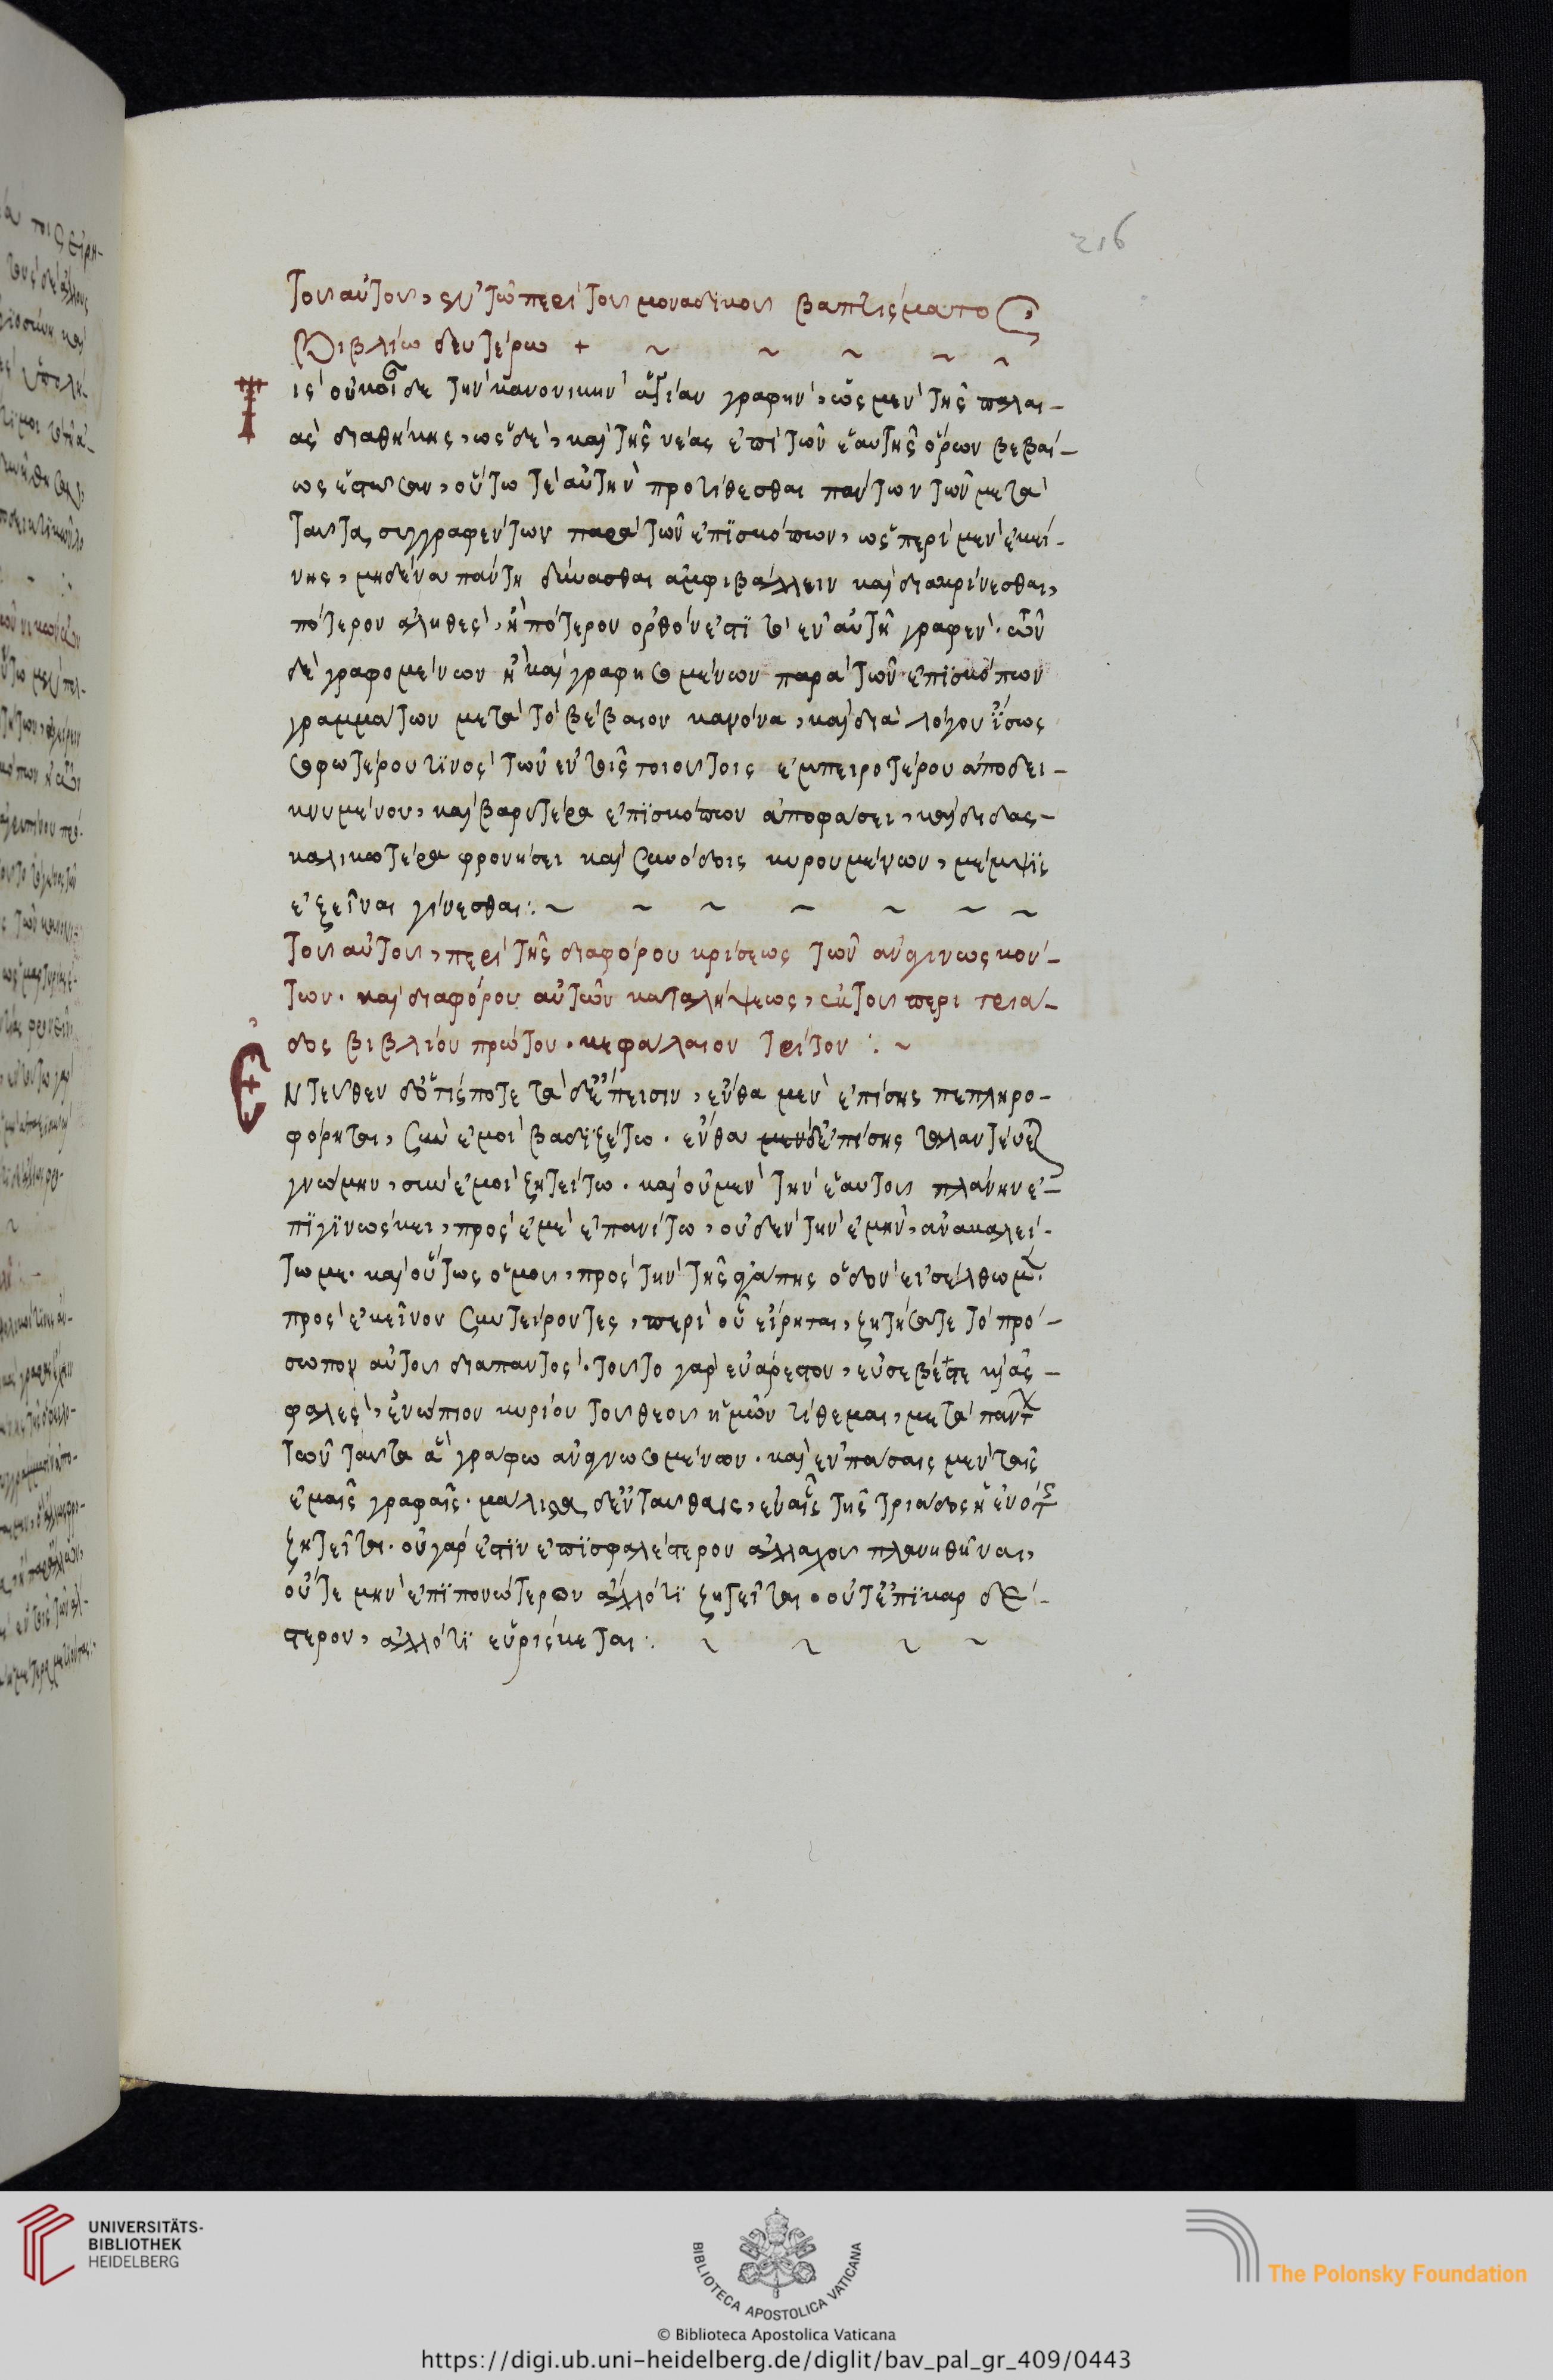 216
Τοῦ αὐτοῦ, ἐν τῷ περὶ τοῦ μοναδικοῦ βαπτίσματος
Βιβλίω δευτέρω +
Τις οὐκ οἶδε τὴν κανονικὴν ἁγίαν γραφὴν, ὡς μὲν τῆς παλαι-
ᾶς διαθήκης, ὡς δὲ, καὶ τῆς νέας ἐπὶ τῶν ἑαυτῆς ὅρων βεβαί-
ως ἑστῶσαν, οὕτω τὲ αὐτὴν προτίθεσθαι πάντων τῶν μετὰ
ταῦτα συγγραφέντων παρὰ τῶν ἐπϊσκόπων, ὡς περὶ μὲν ἐκεί-
νης, μηδένα πάντη δύνασθαι ἀμφιβάλλειν καὶ διακρίνεσθαι,
πότερον ἀληθὲς, ἢ πότερον ὀρθόν ἐστϊ τὸ ἐν αὐτῆ γραφὲν. τῶν
δὲ γραφομένων ἢ καὶ γραφησομένων παρὰ τῶν ἐπϊσκόπων
γραμμάτων μετὰ τὸ βέβαιον κανόνα, καὶ διὰ λόγου ἴσως
σοφωτέρου τϊνὸς τῶν ἐν τοῖς τοιούτοις ἐμπειροτέρου ἀποδει-
κνυμένου, καὶ βαρυτέρα ἐπϊσκόπων ἀποφάσει, καὶ διδας-
καλικωτέρα φρονήσει καὶ συνόδοις κυρουμένων, μέμψϊς
ἐξεῖναι γίνεσθαι:
Τοῦ αὐτοῦ, περὶ τῆς διαφόρου κρίσεως τῶν ἀναγινωσκόν-
των. καὶ διαφόρου αὐτῶν καταλήψεως, ἐκ τοῦ περι τριά-
δος βιβλίου πρώτου. κεφάλαιον τρίτον :
Ἐντεῦθεν ὅστίς ποτε τάδ' ἔπεισιν, ἔνθα μὲν ἐπίσης πεπληρο-
φόρηται, σὺν ἐμοὶ βαδϊζέτω. ἔνθα δ' ἐπίσης ταλαντεύει
γνώμην, σὺν ἐμοὶ ζητείτω. καὶ οὗ μὲν τὴν ἑαυτοῦ πλάνην ἐ-
πϊγϊνώσκει, πρὸς ἐμὲ ἐπανίτω, οὗ δὲ τὴν ἐμὴν, ἀνακαλεί-
τω με. καὶ οὕτως ὁμοῦ, πρὸς τὴν τῆς ἀγάπης ὁδὸν εἰσέλθωμεν.
πρὸς ἐκεῖνον συντείροντες, περὶ οὗ εἴρηται, ζητήσατε τὸ πρό-
σωπον αὐτοῦ διαπαντὸς. τοῦτο γὰρ εὐάρεστον, εὐσεβές τε κἀς-
φαλὲς, ἐνώπιον κυρίου τοῦ θεοῦ ἡμῶν τίθεμαι, μετὰ πάντων
τῶν ταῦτα ἃ γράφω ἀναγνωσομένων. καὶ ἐν πάσαις μὲν ταῖς
ἐμαῖς γραφαῖς. μάλιστα δ' ἐνταῦθα, ἐν αἷς τῆς τριάδος ἡ ἑνότης
ζητεῖται. οὐ γάρ ἐστϊν ἐπϊσφαλέστερον ἀλλαχοῦ πλανηθῆναι,
οὔτε μὴν ἐπϊπονώτερον ἄλλό τϊ ζητεῖται. οὔτ' ἐπϊκαρδέ-
στερον, ἄλλό τϊ εὑρίσκεται:
UNIVERSITÄTS-
BIBLIOTHEK
HEIDELBERG
BIBLIOTECA APOSTOLICA VATICANA
The Polonsky Foundation
© Biblioteca Apostolica Vaticana
https://digi.ub.uni-heidelberg.de/diglit/bav_pal_gr_409/0443